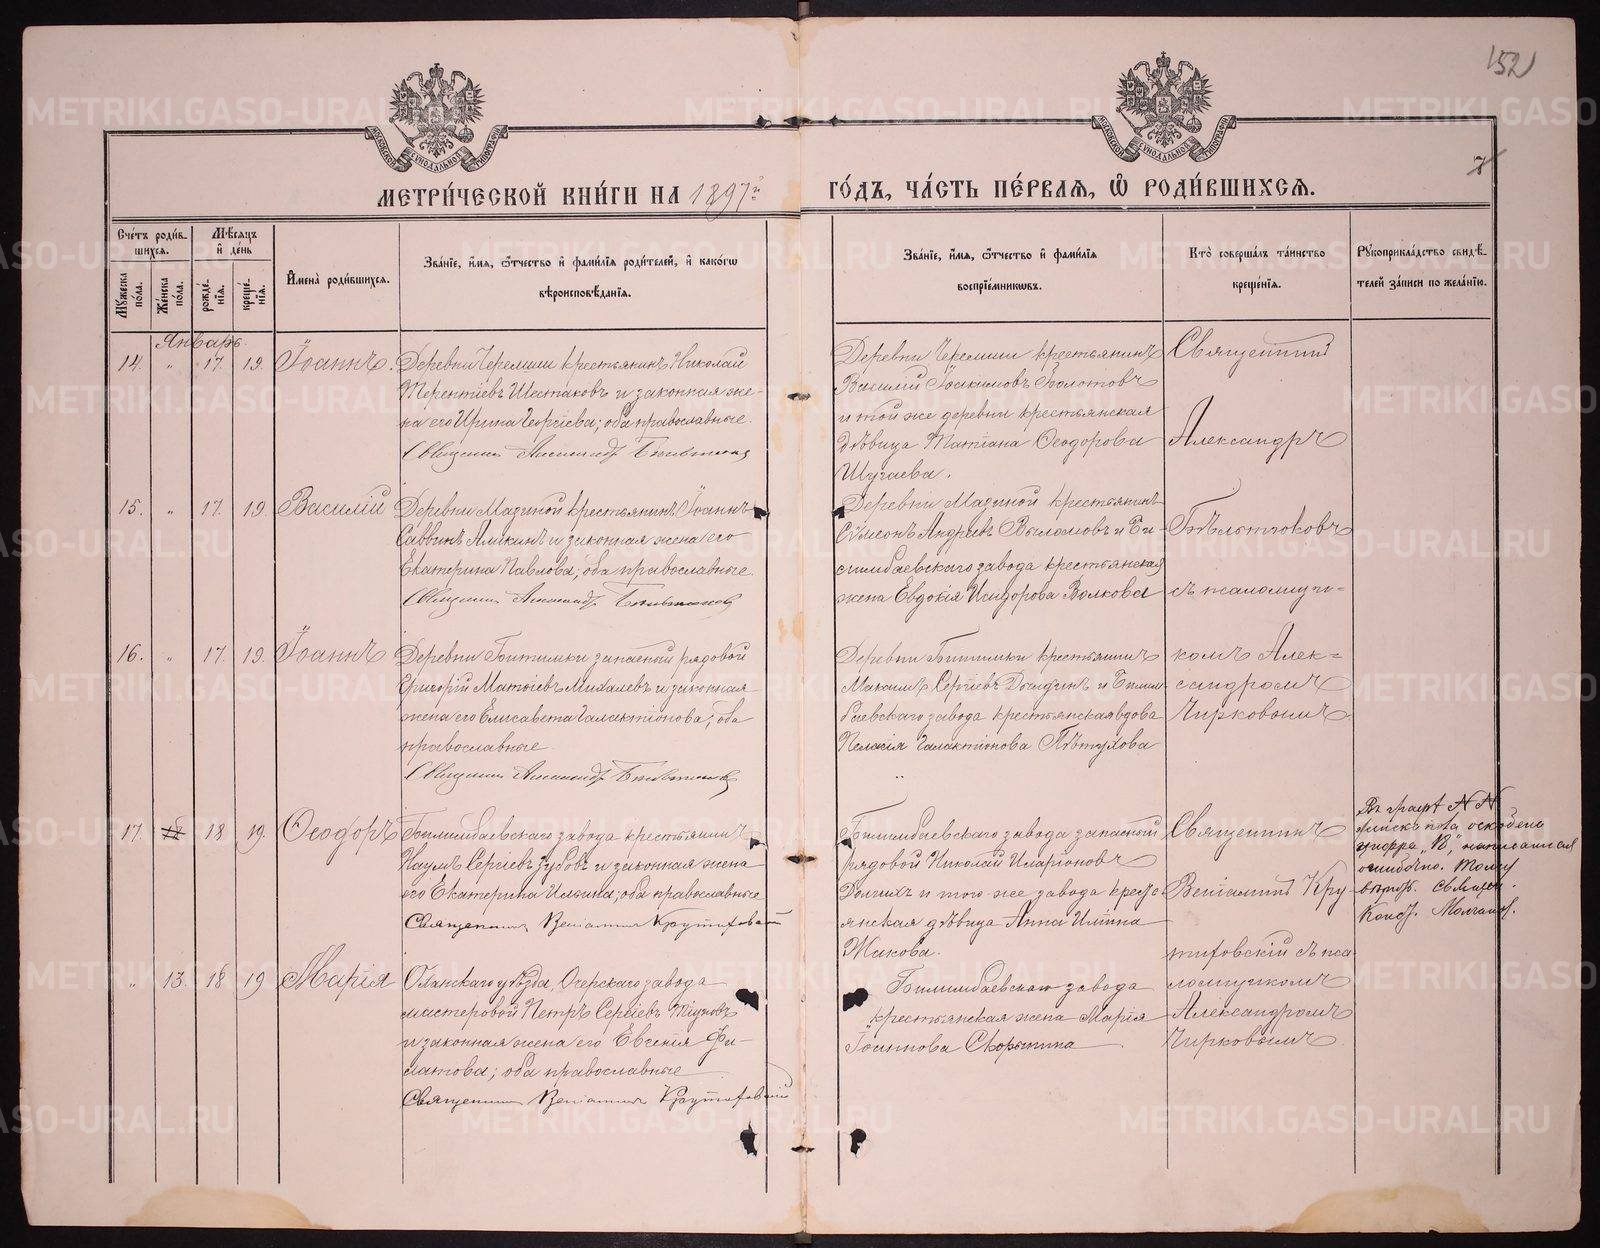 152
7
МЕТРИ́ЧЕСКОЙ КНИ́ГИ НА 1897й ГО́ДЪ, ЧА́СТЬ ПЕ́РВАЯ, Ѡ҆ РОДИ́ВШИХСЯ.
Сче́тъ роди́в-
шихся.
Мѣ́сяцъ
и҆ де́нь
Му́жеска по́ла.
Же́нска по́ла.
рожде́-
нія.
креще́-
нія.
И҆мена̀ роди́вшихся.
Зва́ніе, и҆́мя, ѻ҆́тчество и҆ фами́лія роди́телей, и҆ како́гѡ
вѣроисповѣ́данія.
Зва́ніе, и҆́мя, ѻ҆́тчество и҆ фами́лія
воспріе́мникѡвъ.
Кто̀ соверша́лъ та́инство
креще́нія.
Рꙋкоприкла́дство свидѣ́-
телей за́писи по жела́нію.
Январь
14. " 17. 19. Іоаннъ.
Деревни Черемши крестьянинъ Николай
Терентіевъ Шестаковъ и законная же-
на его Ирина Георгіева; оба православные.
Священникъ Александръ Бѣльтюковъ
Деревни Черемши крестьянинъ
Василій Іоакимовъ Золотовъ
и той же деревни крестьянская
дѣвица Татіана Ѳеодорова
Шугаева.
Священникъ
Александръ
15. " 17. 19. Василій
Деревни Мазиной крестьянинъ Іоаннъ
Саввинъ Аликинъ и законная жена его
Екатерина Павлова; оба православные.
Священникъ Александръ Бѣльтюковъ
Деревни Мазиной крестьянинъ
Сѵмеонъ Андреевъ Выломовъ и Би-
лимбаевскаго завода крестьянская
жена Евдокія Исидорова Волкова
Бѣльтюковъ
съ псаломщи-
16. " 17. 19. Іоаннъ
Деревни запасный рядовой
Григорій Матѳіевъ Михалевъ и законная
жена его Елисавета Галактіонова; оба
православные.
Священникъ Александръ Бѣльтюковъ
Деревни крестьянинъ
Максимъ Сергіевъ и Билим-
баевскаго завода крестьянская вдова
Пелагія Галактіонова Пѣтухова
"
комъ Алек=
сандромъ
Чирковымъ
17. 18 19. Ѳеодоръ
Билимбаевскаго завода крестьянинъ
Наумъ Сергіевъ Зубовъ и законная жена
его Екатерина Ильина; оба православные
Священникъ Веніаминъ Крутиховскій
Билимбаевскаго завода запасный
рядовой Николай Иларіоновъ
Долгихъ и того же завода кресть-
янская дѣвица Анна Ильина
Жакова.
Священникъ
Веніаминъ Кру
тиховскій съ пса
Въ графѣ NN
женск. пола оскоблена
цифра „13“, написанная
ошибочно. Тому
вѣрю. Священ.
" 13. 18 19 Марія
Оханскаго уѣзда, Очерскаго завода
мастеровой Петръ Сергіевъ Тіуновъ
и законная жена его Евгенія Фи-
латова; оба православные
Священникъ Веніаминъ Крутиховскій
Билимбаевскаго завода
крестьянская жена Марія
Іоаннова Скорынина
ломщикомъ
Александромъ
Чирковымъ.